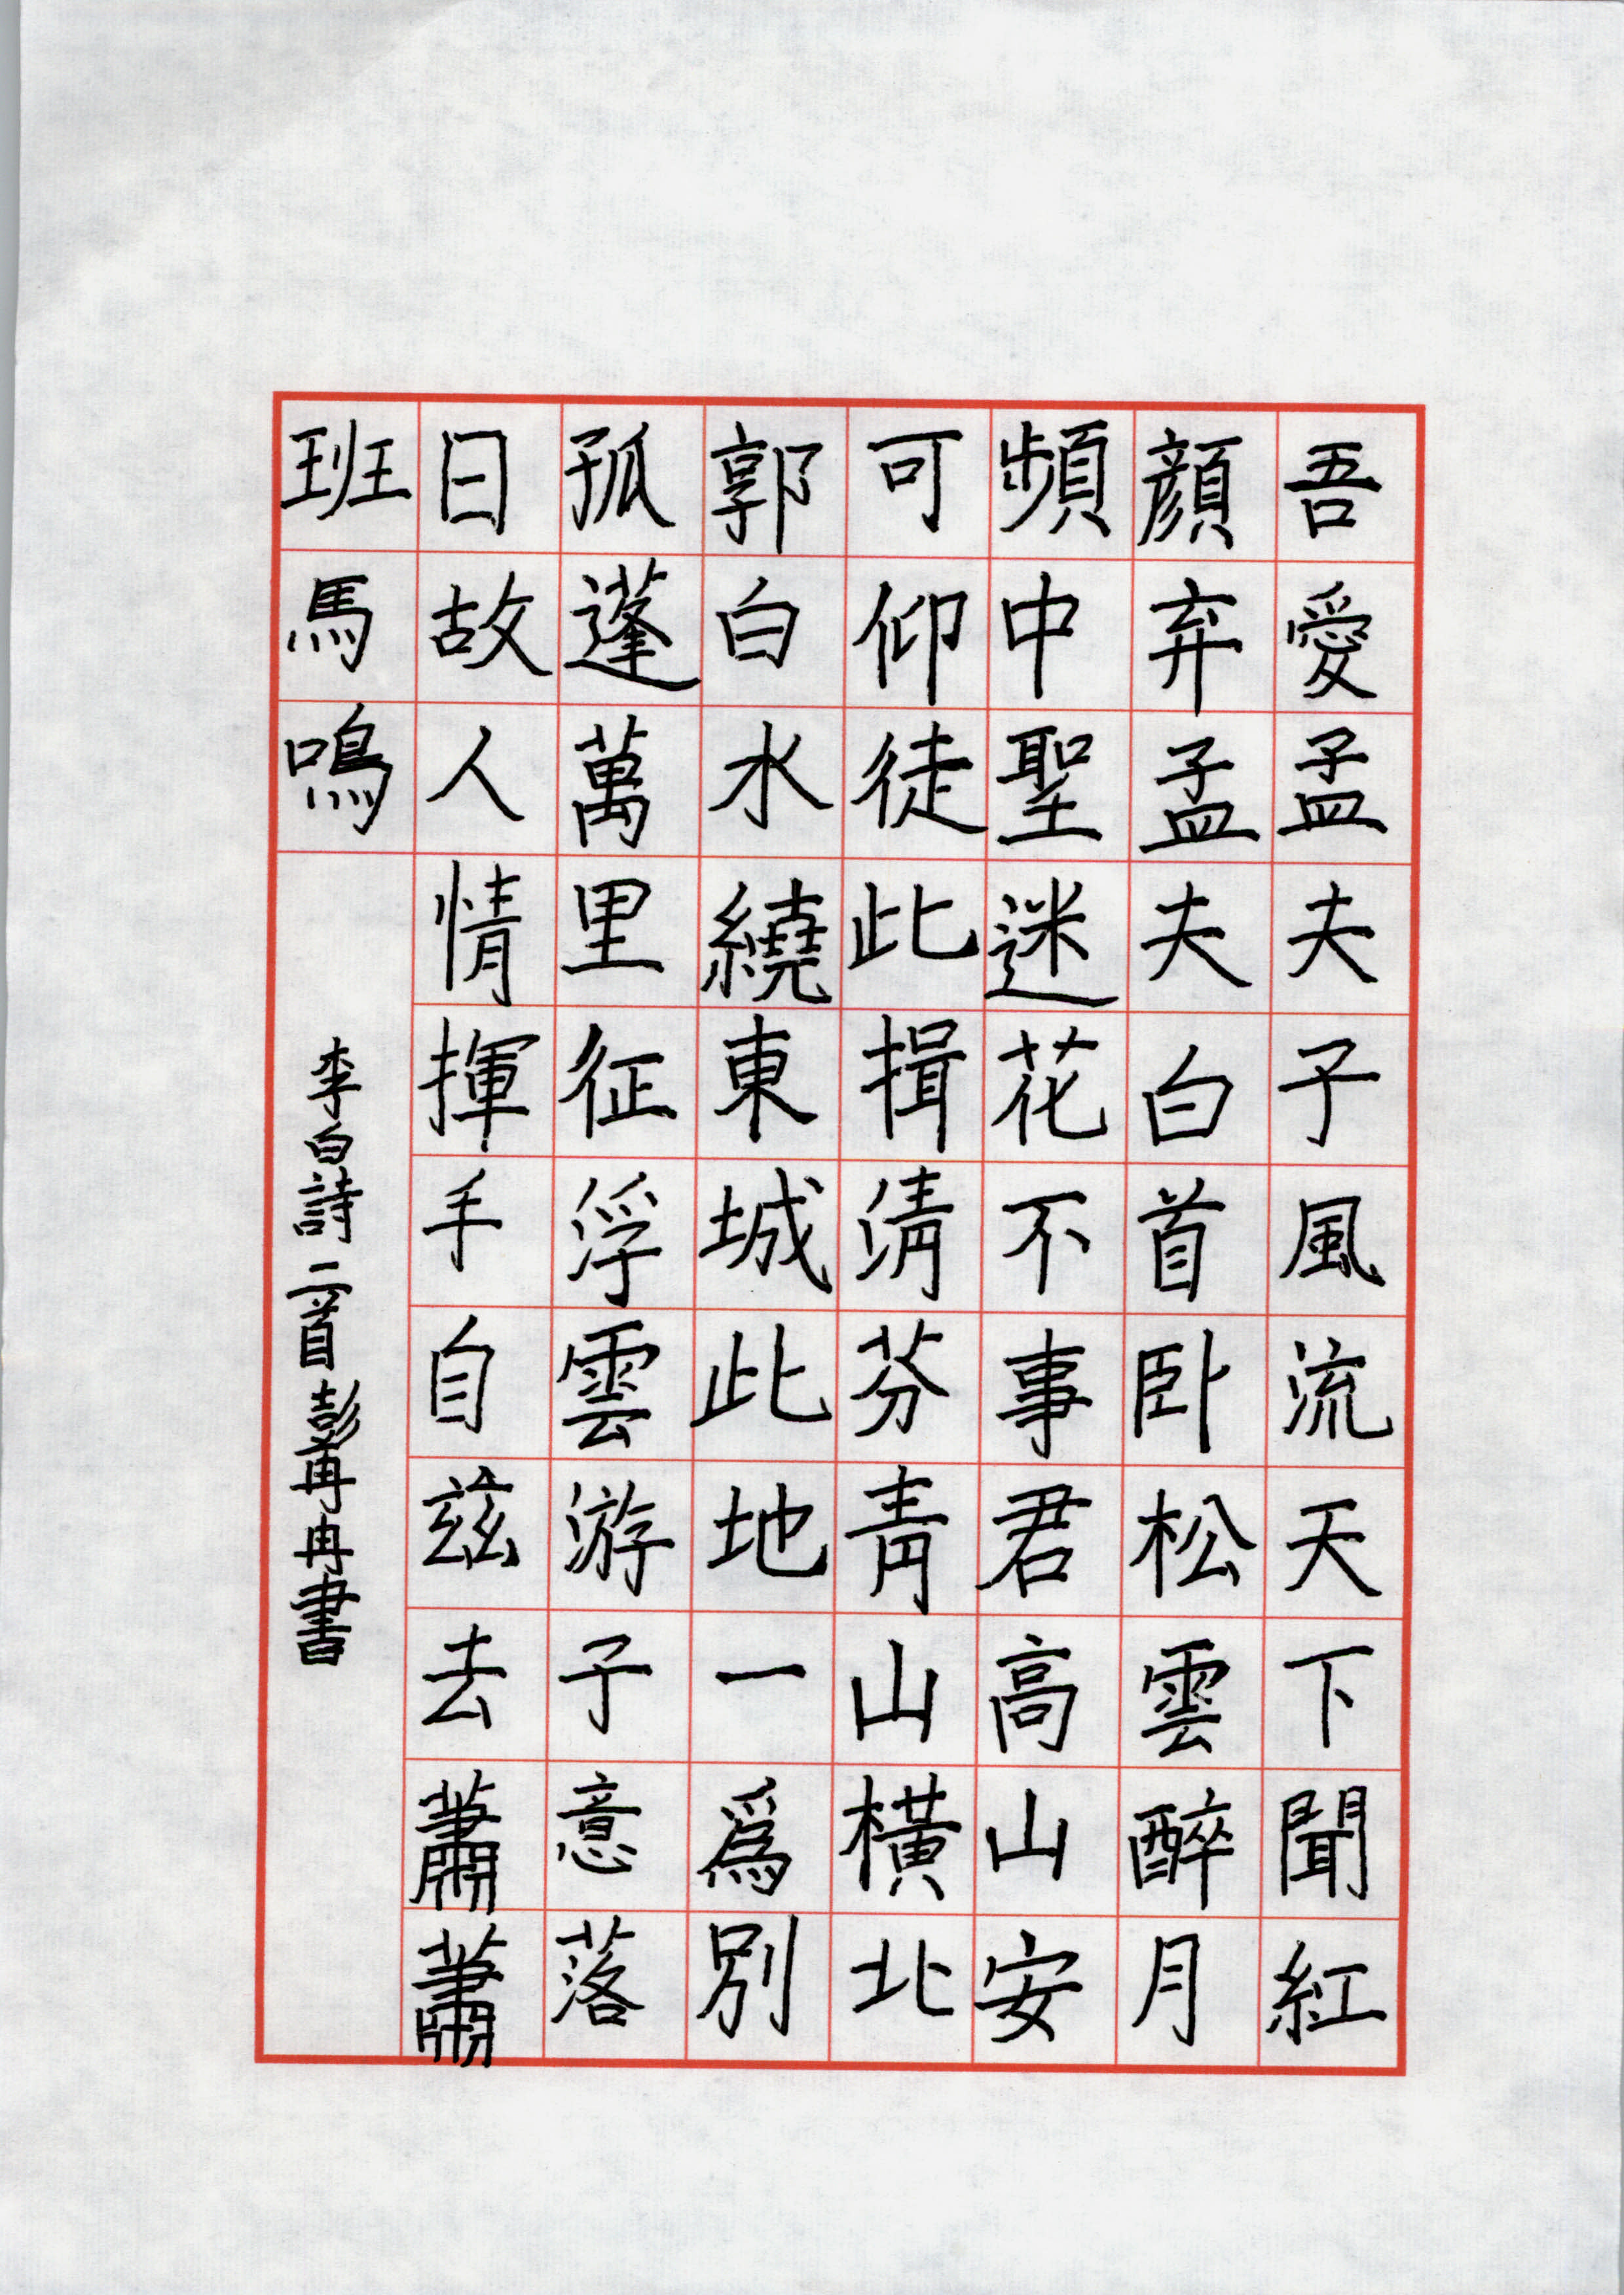 吾愛孟夫子風流天下聞紅
顔弃孟夫白首卧松雲醉月
頻中聖迷花不事君高山安
可仰徒此揖清芬青山橫北
郭白水繞東城此地一爲別
孤蓬萬里征浮雲游子意落
日故人情揮手自茲去蕭蕭
班馬鳴
李白詩二首彭冉冉書